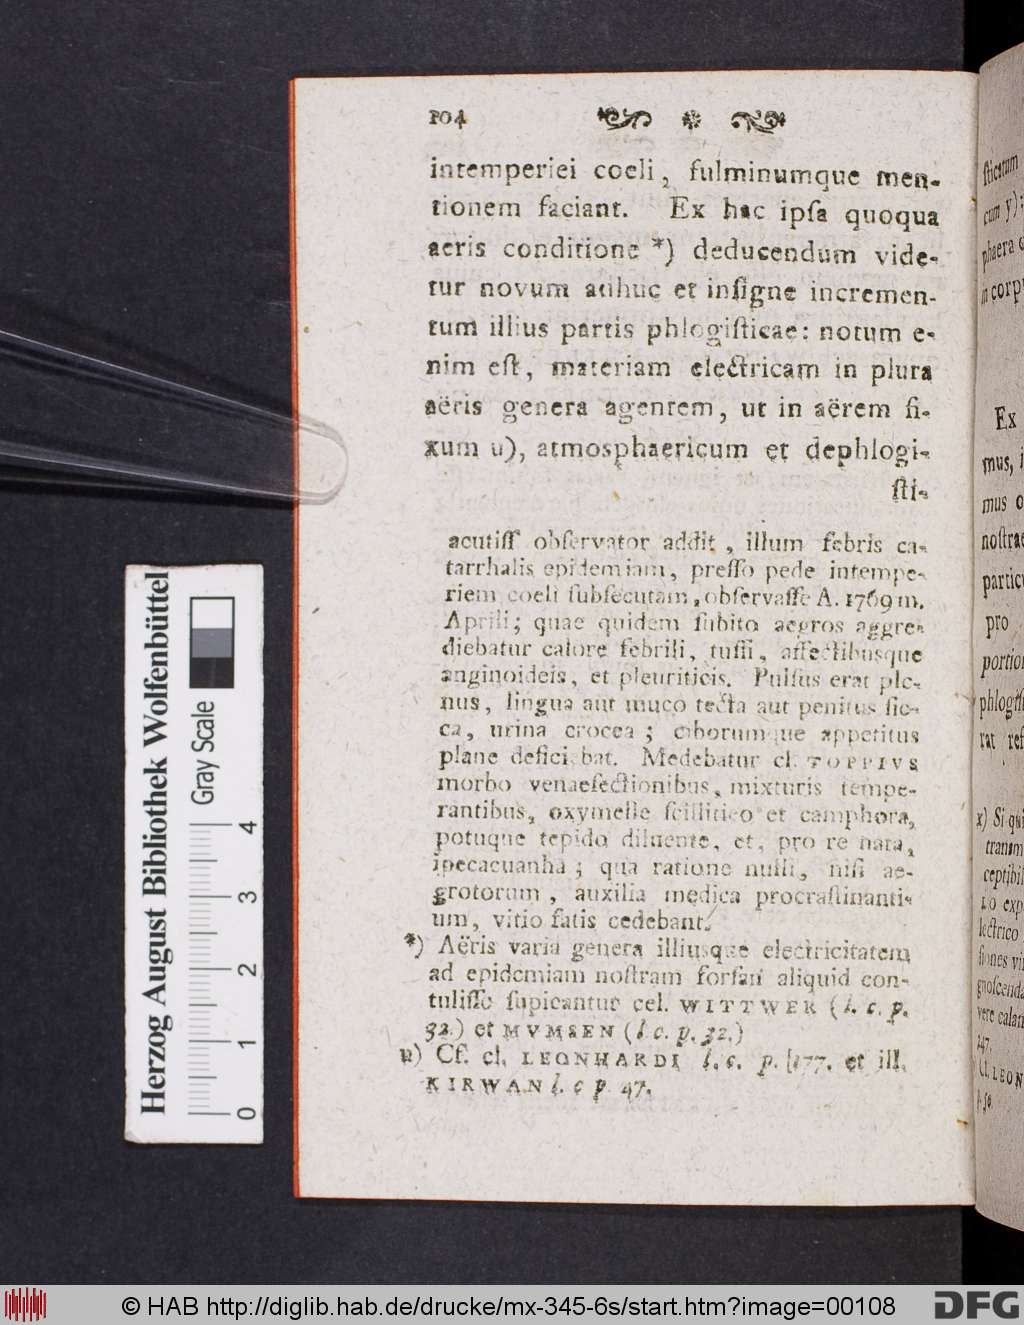 104
intemperiei coeli, fulminumque men-
tionem faciant. Ex hac ipſa quoqua
aeris conditione *) deducendum vide-
tur novum adhuc et inſigne incremen-
tum illius partis phlogiſticae: notum e-
nim eſt, materiam electricam in plura
aëris genera agentem, ut in aërem fi-
xum u), atmosphaericum et dephlogi-
ſti-
acutiſſ obſervator addit, illum febris ca-
tarrhalis epidemiam, preſſo pede intempe-
riem coeli ſubſecutam, obſervaſſe A. 1769 m.
Aprili; quae quidem ſubito aegros aggre-
diebatur calore febrili, tuſſi, affectibusque
anginoideis, et pleuriticis. Pulſus erat ple-
nus, lingua aut muco tecta aut penitus ſic-
ca, urina crocea; ciborumque appetitus
plane deficiebat. Medebatur cl. TOPPIVS
morbo venaeſectionibus, mixturis tempe-
rantibus, oxymelle ſcillitico et camphora,
potuque tepido diluente, et, pro re nata,
ipecacuanha; qua ratione nulli, niſi ae-
grotorum, auxilia medica procraſtinanti-
um, vitio fatis cedebant.
*) Aëris varia genera illiusque electricitatem
ad epidemiam noſtram forſan aliquid con-
tuliſſe ſupicantur cel. WITTWER (l. c. p.
32.) et MVMSEN (l. c. p. 32.)
u) Cf. cl. LEONHARDI l. c. p. 177. et ill.
KIRWAN l. c p. 47.
ſticatum
cum y);
phaera
in corp
Ex
mus,
mus
noſtrae
particu
pro
portion
phlogiſti
rat ref
x) Si qui
tranſm
ceptibil
no exp
lectrico
ſiones vi
gnoſcenda
vere calari
247.
Cl. LEON
p. 50.
Herzog August Bibliothek Wolfenbüttel
Gray Scale
0 1 2 3 4
© HAB http://diglib.hab.de/drucke/mx-345-6s/start.htm?image=00108
DFG